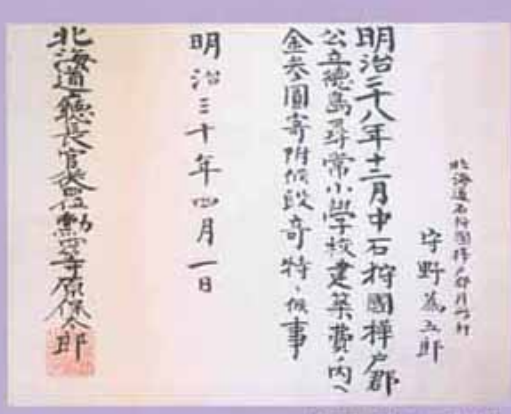 北海道石狩國樺戸郡月形村
野為五郎
明治二十八年十二月中石狩國樺戸郡
公立徳島尋常小學校建築費ノ内ヘ
金参圓寄附候段奇特ニ候事
明治三十年四月一日
北海道廳長官位勲等原保太郎